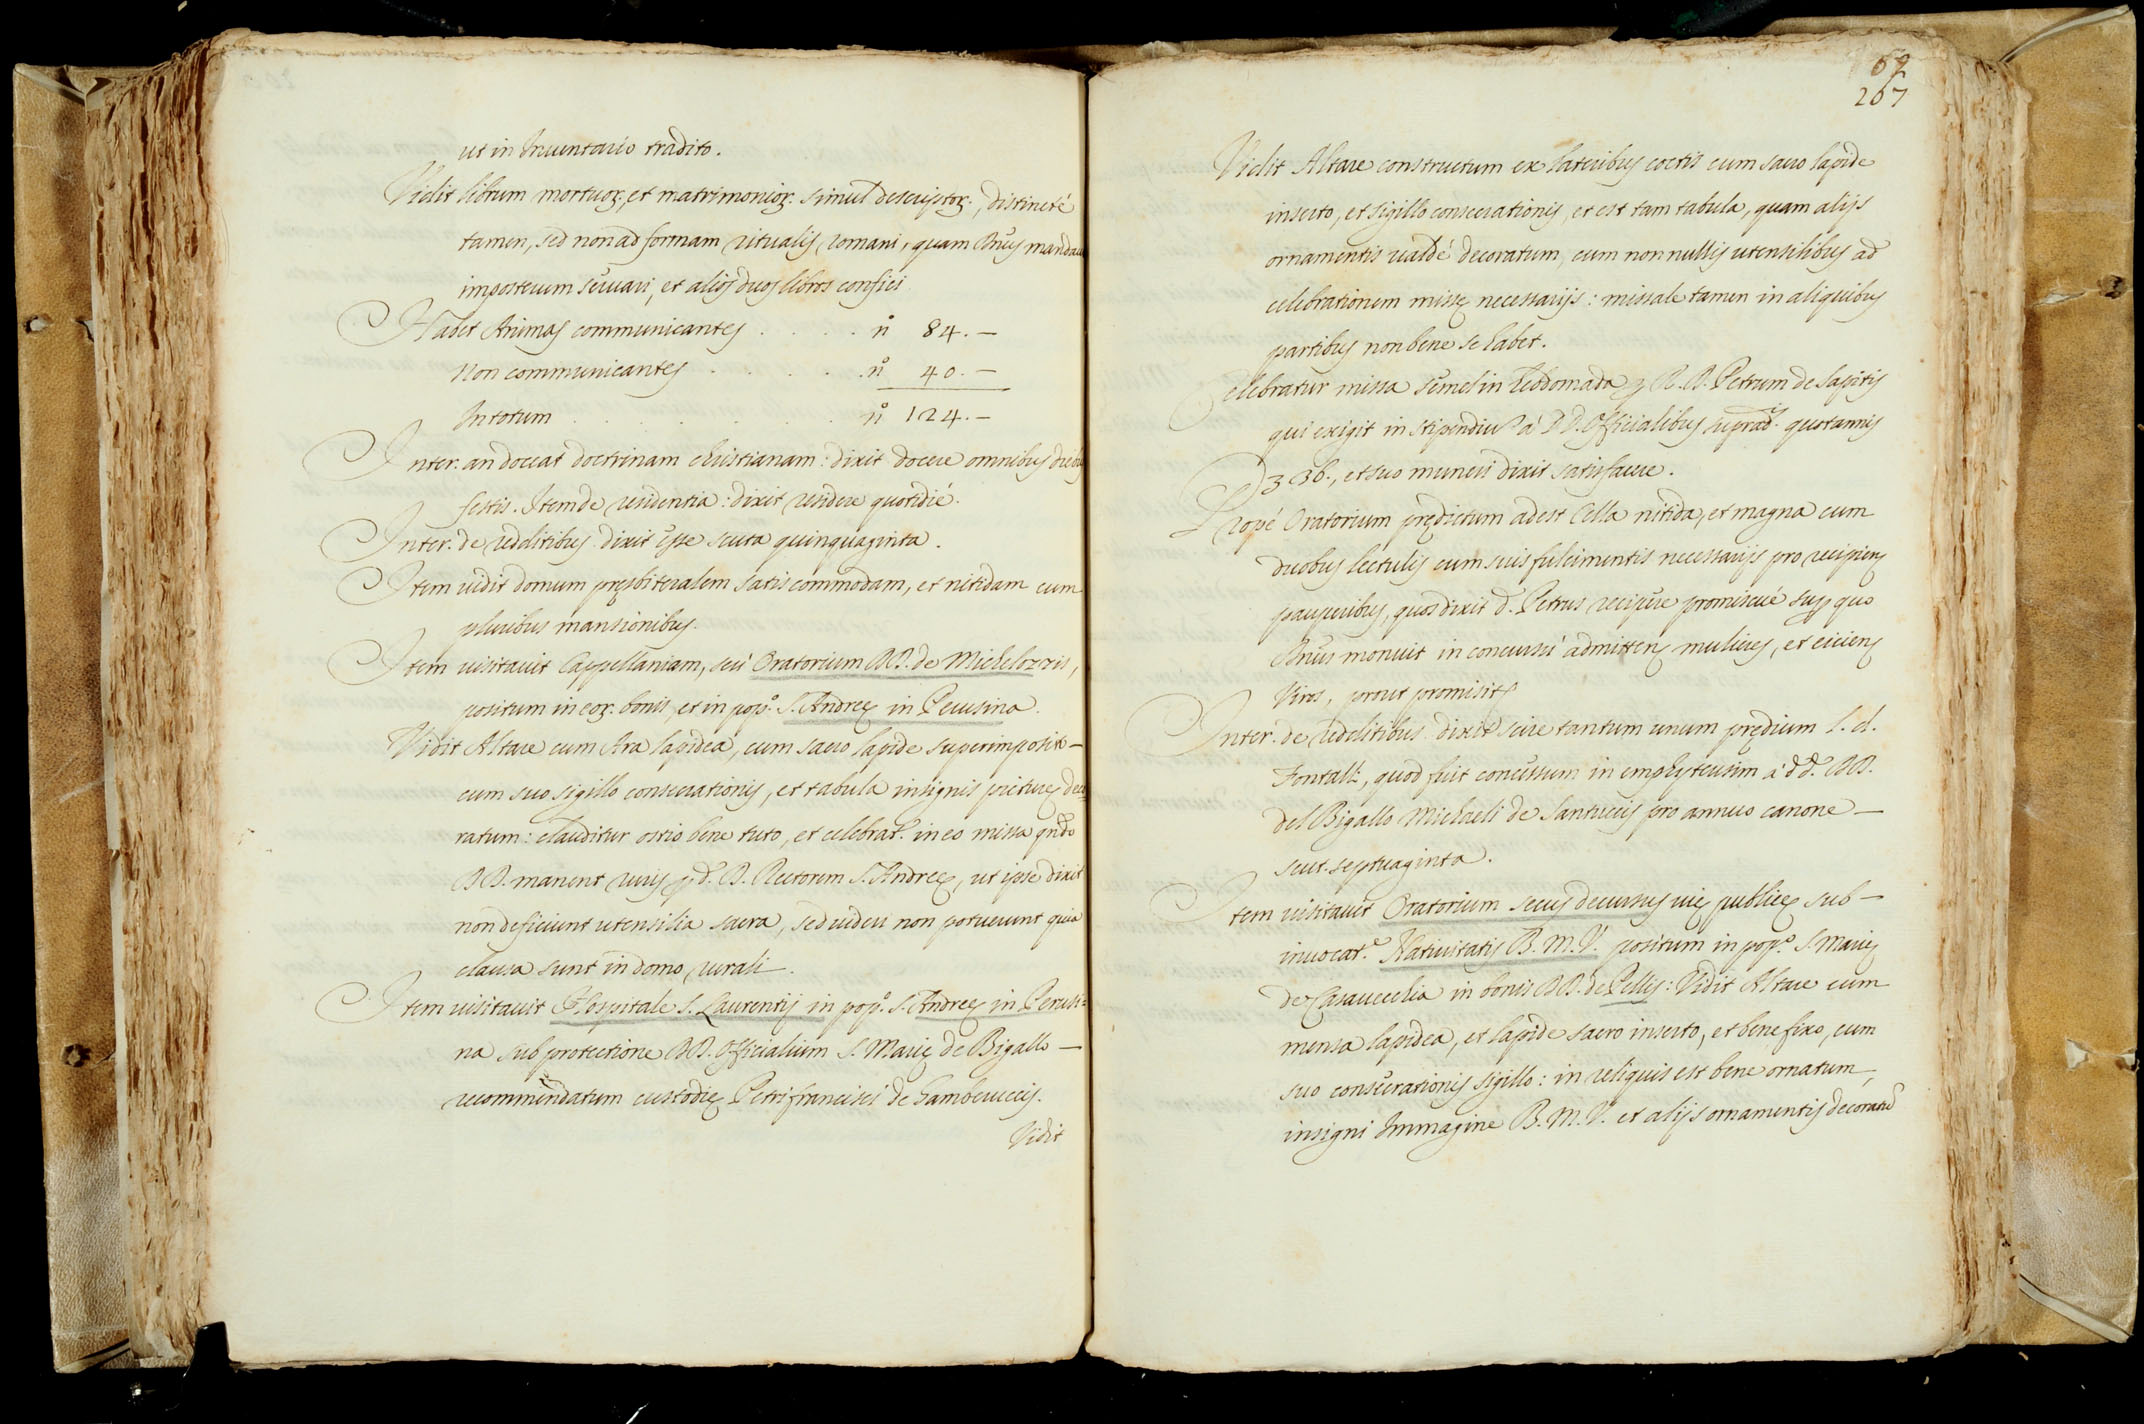 ut in Inuentario tradito.
Vidit librum mortuoꝝ, et matrimonioꝝ simul descriptoꝝ, distincté
tamen, sed non ad formam ritualis romani, quam Illmus mandauit
imposterum seruari, et alios duos libros confici
Habet Animas communicantes . . . . n° 84.—
Non communicantes . . . . . n° 40.—
In totum . . . . . . . n° 124.—
Inter. an doceat doctrinam christianam: dixit docere omnibus diebus
festis. Item de residentia: dixit residere quotidié.
Inter. de redditibus dixit esse scuta quinquaginta.
Item uidit domum pręsbiteralem satis commodam, et nitidam cum
pluribus mansionibus.
Item uisitauit Cappellaniam, seù Oratorium DD. de Michelozzis,
positum in eoꝝ bonis, et in pop°. S. Andreę in Percusina.
Vidit Altare cum Ara lapidea, cum sacro lapide superimposito—
cum suo sigillo consecrationis, et tabula insignis picturę deco=
ratum: clauditur ostio bene tuto, et celebrat. in eo missa qndo
DD. manent ruri, ꝑ d. D. Rectorem S. Andreę, ut ipse dixit
non deficiunt utensilia sacra, sed uideri non potuerunt quia
clausa sunt in domo rurali.
Item uisitauit Hospitale S. Laurentij in pop°. S. Andreę in Percusi=
na sub protectione DD. Officialium S. Marię de Bigallo—
recommendatum custodię Petrifrancisci de Sambruccis.
Vidit
69
267
Vidit Altare constructum ex lateribus coctis cum sacro lapide
inserto, et sigillo consecrationis, et est tam tabula, quam alijs
ornamentis ualdé decoratum, cum nonnullis utensilibus ad
celebrationem missę necessarijs: missale tamen in aliquibus
partibus non bene se habet.
Celebratur missa semel in hebdomada ꝑ R. D. Petrum de Sapitis
qui exigit in stipendiu à DD. Officialibus suprad. quotannis
36., et suo muneri dixit satisfacere.
Propé Oratorium prędictum adest Cella nitida, et magna cum
duobus lectulis cum suis fulcimentis necessarijs pro recipien.
pauperibus, quos dixit d. Petrus recipere promiscué sup. quo
Illmus monuit in concursu admitten. mulieres, et eicien.
Viros, prout promisit
Inter. de redditibus dixit scire tantum unum prędium l. d.
Fontalli, quod fuit concessum in emphyteusim à dd. DD.
del Bigallo Michaeli de Santuccis pro annuo canone—
scut. septuaginta.
Item uisitauit Oratorium secus decursus uię publicę sub—
inuocat.e Natiuitatis B. M. V. positum in pop°. S. Marię
de Casauecchia in bonis DD. de Pellis: Vidit Altare cum
mensa lapidea, et lapide sacro inserto, et bene fixo, cum
suo consecrationis sigillo: in reliquis est bene ornatum,
insigni Immagine B. M. V. et alijs ornamentis decoratu